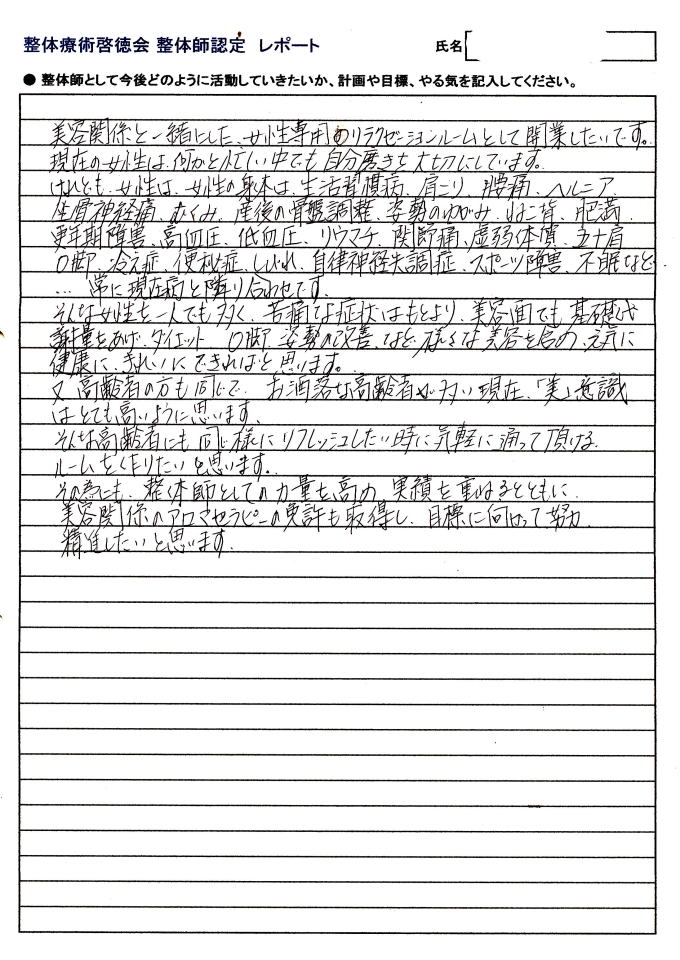 整体療術啓徳会 整体師認定 レポート 氏名
● 整体師として今後どのように活動していきたいか、計画や目標、やる気を記入してください。
美容関係と一緒にした、女性専用のリラクゼーションルームとして開業したいです。
現在の女性は、何かと忙しい中でも自分磨きも大切にしています。
けれども、女性は、女性の身体は、生活習慣病、肩こり、腰痛、ヘルニア、
坐骨神経痛、むくみ、産後の骨盤調整、姿勢のゆがみ、ねこ背、肥満、
更年期障害、高血圧、低血圧、リウマチ、関節痛、虚弱体質、五十肩
O脚、冷え症、便秘症、しびれ、自律神経失調症、スポーツ障害、不眠など
… 常に現在病と隣り合わせです。
そんな女性を一人でも多く、苦痛な症状はもとより、美容面でも、基礎代
謝量をあげ、ダイエット、O脚、姿勢の改善、など、様々な美容を含め、元気に
健康に、きれいにできればと思います。
又、高齢者の方も同じで、お洒落な高齢者が多い現在、「美」意識
はとても高いように思います。
そんな高齢者にも同じ様にリフレッシュしたい時に気軽に通って頂ける
ルームを作りたいと思います。
その為にも、整体師としての力量を高め、実績を重ねるとともに、
美容関係のアロマセラピーの免許も取得し、目標に向けって努力、
精進したいと思います。